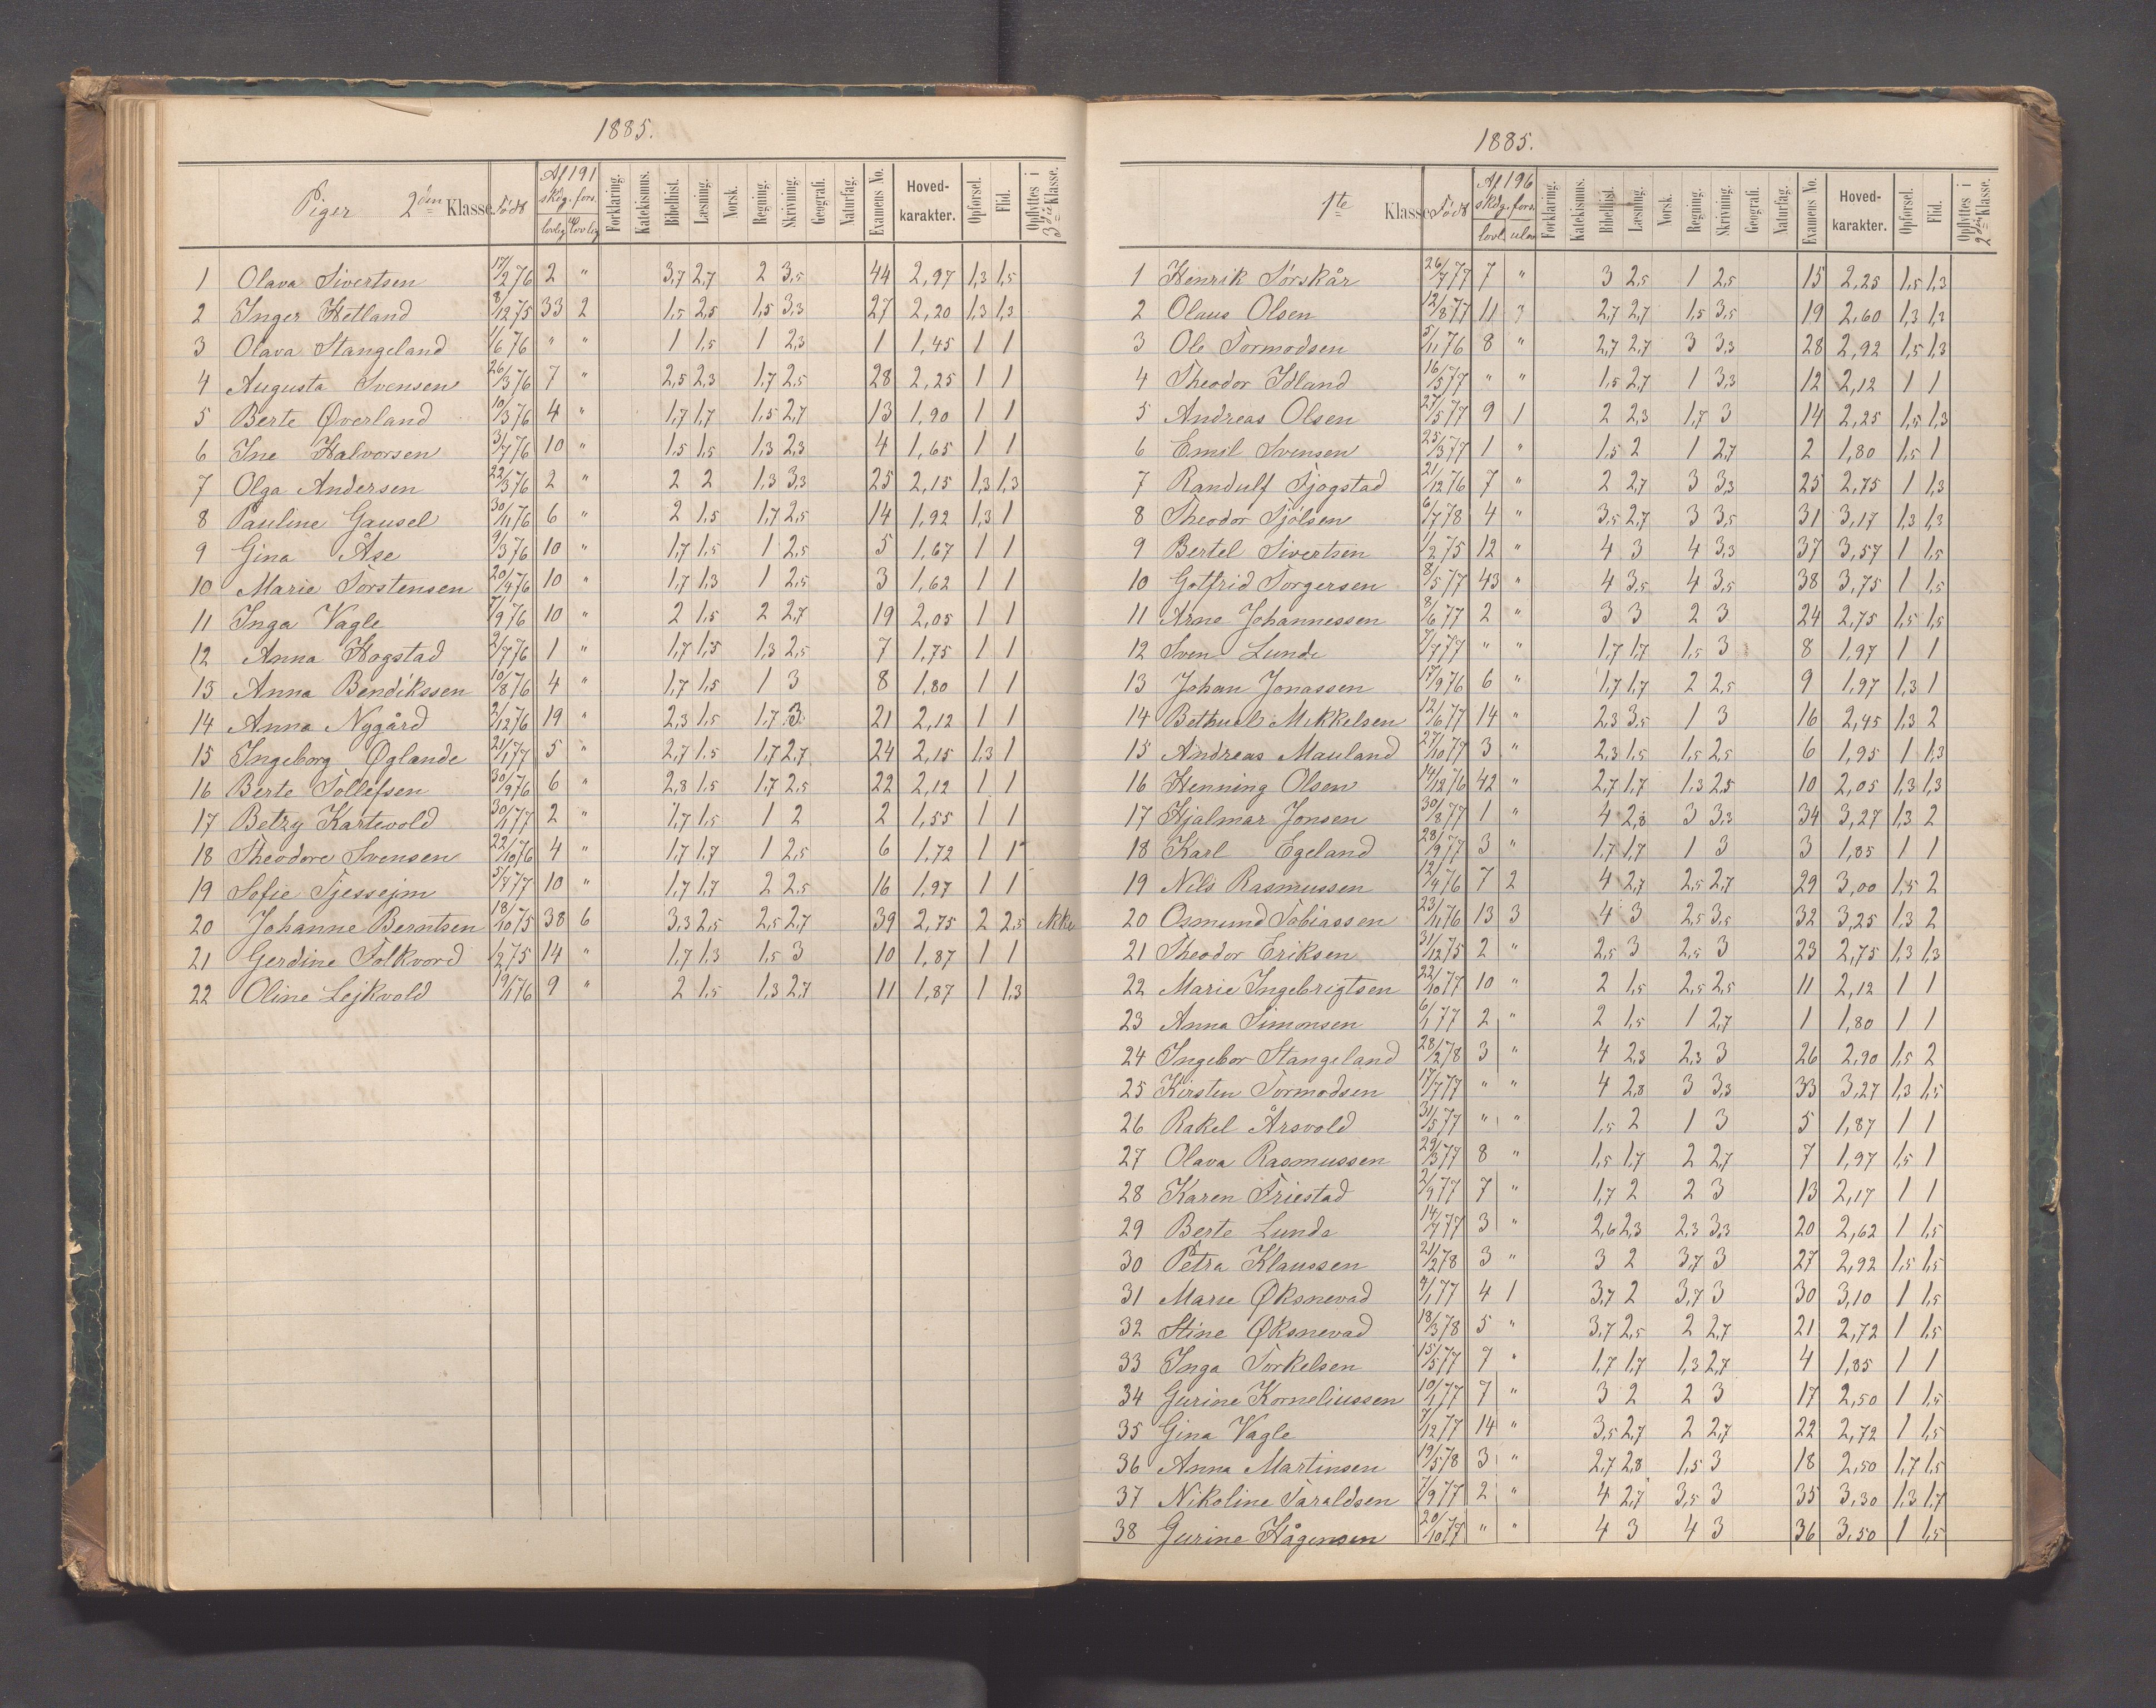 1885.
Piger 2den Klasse. Född Af 191 skdg. fors. lovlig ulovlig Forklaring. Katekismus. Bibelhist. Læsning. Norsk. Regning. Skrivning. Geografi. Naturfag. Examens No. Hoved-karakter. Opførsel. Flid. Opflyttes i 3die Klasse.
1 Olava Sivertsen 17/2 76 2 " 3,7 2,7 2 3,5 44 2,97 1,3 1,5
2 Inger Hetland 8/12 75 33 2 1,5 2,5 1,5 3,3 27 2,20 1,3 1,3
3 Olava Stangeland 1/6 76 " " 1 1,5 1 2,3 1 1,45 1 1
4 Augusta Svensen 26/3 76 7 " 2,5 2,3 1,7 2,5 28 2,25 1 1
5 Berte Øverland 10/3 76 4 " 1,7 1,7 1,5 2,7 13 1,90 1 1
6 Ine Halvorsen 3/7 76 10 " 1,5 1,5 1,3 2,3 4 1,65 1 1
7 Olga Andersen 22/3 76 2 " 2 2 1,3 3,3 25 2,15 1,3 1,3
8 Pauline Gausel 30/11 76 6 " 2 1,5 1,7 2,5 14 1,92 1,3 1
9 Gina Åse 9/3 76 10 " 1,7 1,5 1 2,5 5 1,67 1 1
10 Marie Torstensen 20/4 76 10 " 1,7 1,3 1 2,5 3 1,62 1 1
11 Inga Vagle 7/9 76 10 " 2 1,5 2 2,7 19 2,05 1 1
12 Anna Hogstad 2/7 76 1 " 1,7 1,5 1,3 2,5 7 1,75 1 1
13 Anna Bendikssen 10/8 76 4 " 1,7 1,5 1 3 8 1,80 1 1
14 Anna Nygård 2/12 76 19 " 2,3 1,5 1,7 3 21 2,12 1 1
15 Ingeborg Øglande 21/1 77 5 " 2,7 1,5 1,7 2,7 24 2,15 1,3 1
16 Berte Tollefsen 30/9 76 6 " 2,8 1,5 1,7 2,5 22 2,12 1 1
17 Betzy Kartevold 30/1 77 2 " 1,7 1,5 1 2 2 1,55 1 1
18 Theodore Svensen 22/10 76 4 " 1,7 1,7 1 2,5 6 1,72 1 1
19 Sofie Tjessejm 5/7 77 10 " 1,7 1,7 2 2,5 16 1,97 1 1
20 Johanne Berntsen 18/10 75 38 6 3,3 2,5 2,5 2,7 39 2,75 2 2,5 ikke
21 Gerdine Folkvord 1/2 75 14 " 1,7 1,3 1,5 3 10 1,87 1 1
22 Oline Lejkvold 19/1 76 9 " 2 1,5 1,3 2,7 11 1,87 1 1,3
1885.
1te Klasse. Född Af 196 skdg. fors. lovl. ulov. Forklaring. Katekismus. Bibelhist. Læsning. Norsk. Regning. Skrivning. Geografi. Naturfag. Examens No. Hoved-karakter. Opførsel. Flid. Opflyttes i 2den Klasse.
1 Henrik Sørskår 26/7 77 7 " 3 2,5 1 2,5 15 2,25 1,5 1,3
2 Olaus Olsen 12/8 77 11 3 2,7 2,7 1,5 3,5 19 2,60 1,3 1,3
3 Ole Tormodsen 5/11 76 8 " 2,7 2,7 3 3,3 28 2,92 1,5 1,3
4 Theodor Idland 16/5 77 " " 1,5 2,7 1 3,3 12 2,12 1 1
5 Andreas Olsen 27/5 77 9 1 2 2,3 1,7 3 14 2,25 1,5 1,3
6 Emil Svensen 25/3 77 1 " 1,5 2 1 2,7 2 1,80 1,5 1
7 Randulf Tjogstad 21/12 76 7 " 2 2,7 3 3,3 25 2,75 1 1,3
8 Theodor Tjølsen 6/7 78 4 " 3,5 2,7 3 3,5 31 3,17 1,3 1,3
9 Bertel Sivertsen 11/2 75 12 " 4 3 4 3,3 37 3,57 1 1,5
10 Gotfrid Torgersen 8/5 77 43 " 4 3,5 4 3,5 38 3,75 1 1,5
11 Arne Johannessen 8/6 77 2 " 3 3 2 3 24 2,75 1,5 1,5
12 Sven Lunde 7/7 77 " " 1,7 1,7 1,5 3 8 1,97 1 1
13 Johan Jonassen 17/9 76 6 " 1,7 1,7 2 2,5 9 1,97 1,3 1
14 Bethuel Mikkelsen 12/6 77 14 " 2,3 3,5 1 3 16 2,45 1,3 2
15 Andreas Mauland 27/10 77 3 " 2,3 1,5 1,5 2,5 6 1,95 1 1,3
16 Henning Olsen 14/12 76 42 " 2,7 1,7 1,3 2,5 10 2,05 1,3 1,3
17 Hjalmar Jonsen 30/8 77 1 " 4 2,8 3 3,3 34 3,27 1,3 2
18 Karl Egeland 28/9 77 3 " 1,7 1,7 1 3 3 1,85 1 1
19 Nils Rasmussen 12/4 76 7 2 4 2,7 2,5 2,7 29 3,00 1,5 2
20 Osmund Tobiassen 23/11 76 13 3 4 3 2,5 3,5 32 3,25 1,3 2
21 Theodor Eriksen 31/12 75 2 " 2,5 3 2,5 3 23 2,75 1,3 1,3
22 Marie Ingebrigtsen 22/10 77 10 " 2 1,5 2,5 2,5 11 2,12 1 1
23 Anna Simonsen 6/1 77 2 " 2 1,5 1 2,7 1 1,80 1 1
24 Ingebor Stangeland 28/2 78 3 " 4 2,3 2,3 3 26 2,90 1,5 2
25 Kirsten Tormodsen 17/7 77 " " 4 2,8 3 3,3 33 3,27 1,3 1,5
26 Rakel Årsvold 31/5 77 " " 1,5 2 1 3 5 1,87 1 1
27 Olava Rasmussen 29/3 77 8 " 1,5 1,7 2 2,7 7 1,97 1,5 1
28 Karen Friestad 2/9 77 7 " 1,7 2 2 3 13 2,17 1 1
29 Berte Lunde 14/7 77 3 " 2,6 2,3 2,3 3,3 20 2,62 1 1,5
30 Petra Klaussen 21/2 78 3 " 3 2 3,7 3 27 2,92 1,5 1,5
31 Marie Øksnevad 9/1 77 4 1 3,7 2 3,7 3 30 3,10 1 1,5
32 Stine Øksnevad 18/3 78 5 " 3,7 2,5 2 2,7 21 2,72 1 1,5
33 Inga Torkelsen 15/5 77 7 " 1,7 1,7 1,3 2,7 4 1,85 1 1
34 Gurine Korneliussen 10/1 77 7 " 3 2 2 3 17 2,50 1 1,5
35 Gina Vagle 7/12 77 14 " 3,5 2,7 2 2,7 22 2,72 1 1,5
36 Anna Martinsen 19/5 78 3 " 2,7 2,8 1,5 3 18 2,50 1,7 1,5
37 Nikoline Taraldsen 7/9 77 2 " 4 2,7 3,5 3 35 3,30 1,3 1,7
38 Gurine Hågensen 20/10 77 " " 4 3 4 3 36 3,50 1 1,5